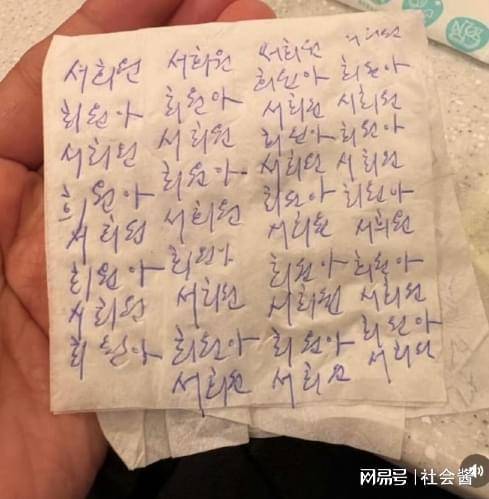 서희원 서희원 서희원 서희원
희원아 희원아 희원아 희원아
서희원 서희원 서희원 서희원
희원아 희원아 희원아 희원아
서희원 서희원 서희원 서희원
희원아 희원아 희원아 희원아
서희원 서희원 서희원 서희원
희원아 희원아 희원아 희원아
서희원 서희원 서희원
网易号 | 社会酱